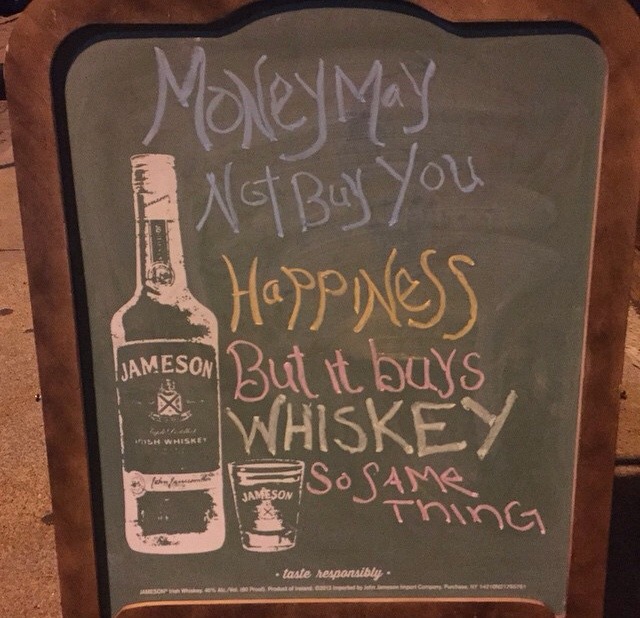 Money May
Not Buy You
HaPPiNeSS
But it buys
WHISKEY
So SAMe
THinG
JAMESON
IRISH WHISKEY
John Jameson
JAMESON
· taste responsibly ·
JAMESON® Irish Whiskey. 40% Alc./Vol. (80 Proof). Product of Ireland. ©2013 Imported by John Jameson Import Company, Purchase, NY